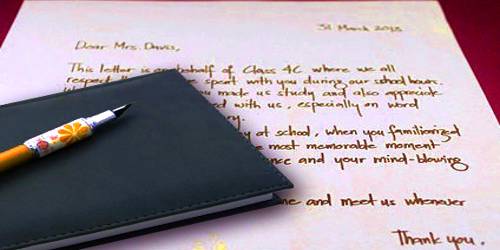 31 March 2018
Dear Mrs. Davis,
This letter is on behalf of Class 4C where we all
respect the time spent with you during our school hours.
made us study and also appreciate
with us, especially on word
y at school, when you familiarized
most memorable moment
and your mind-blowing
and meet us whenever
Thank you.